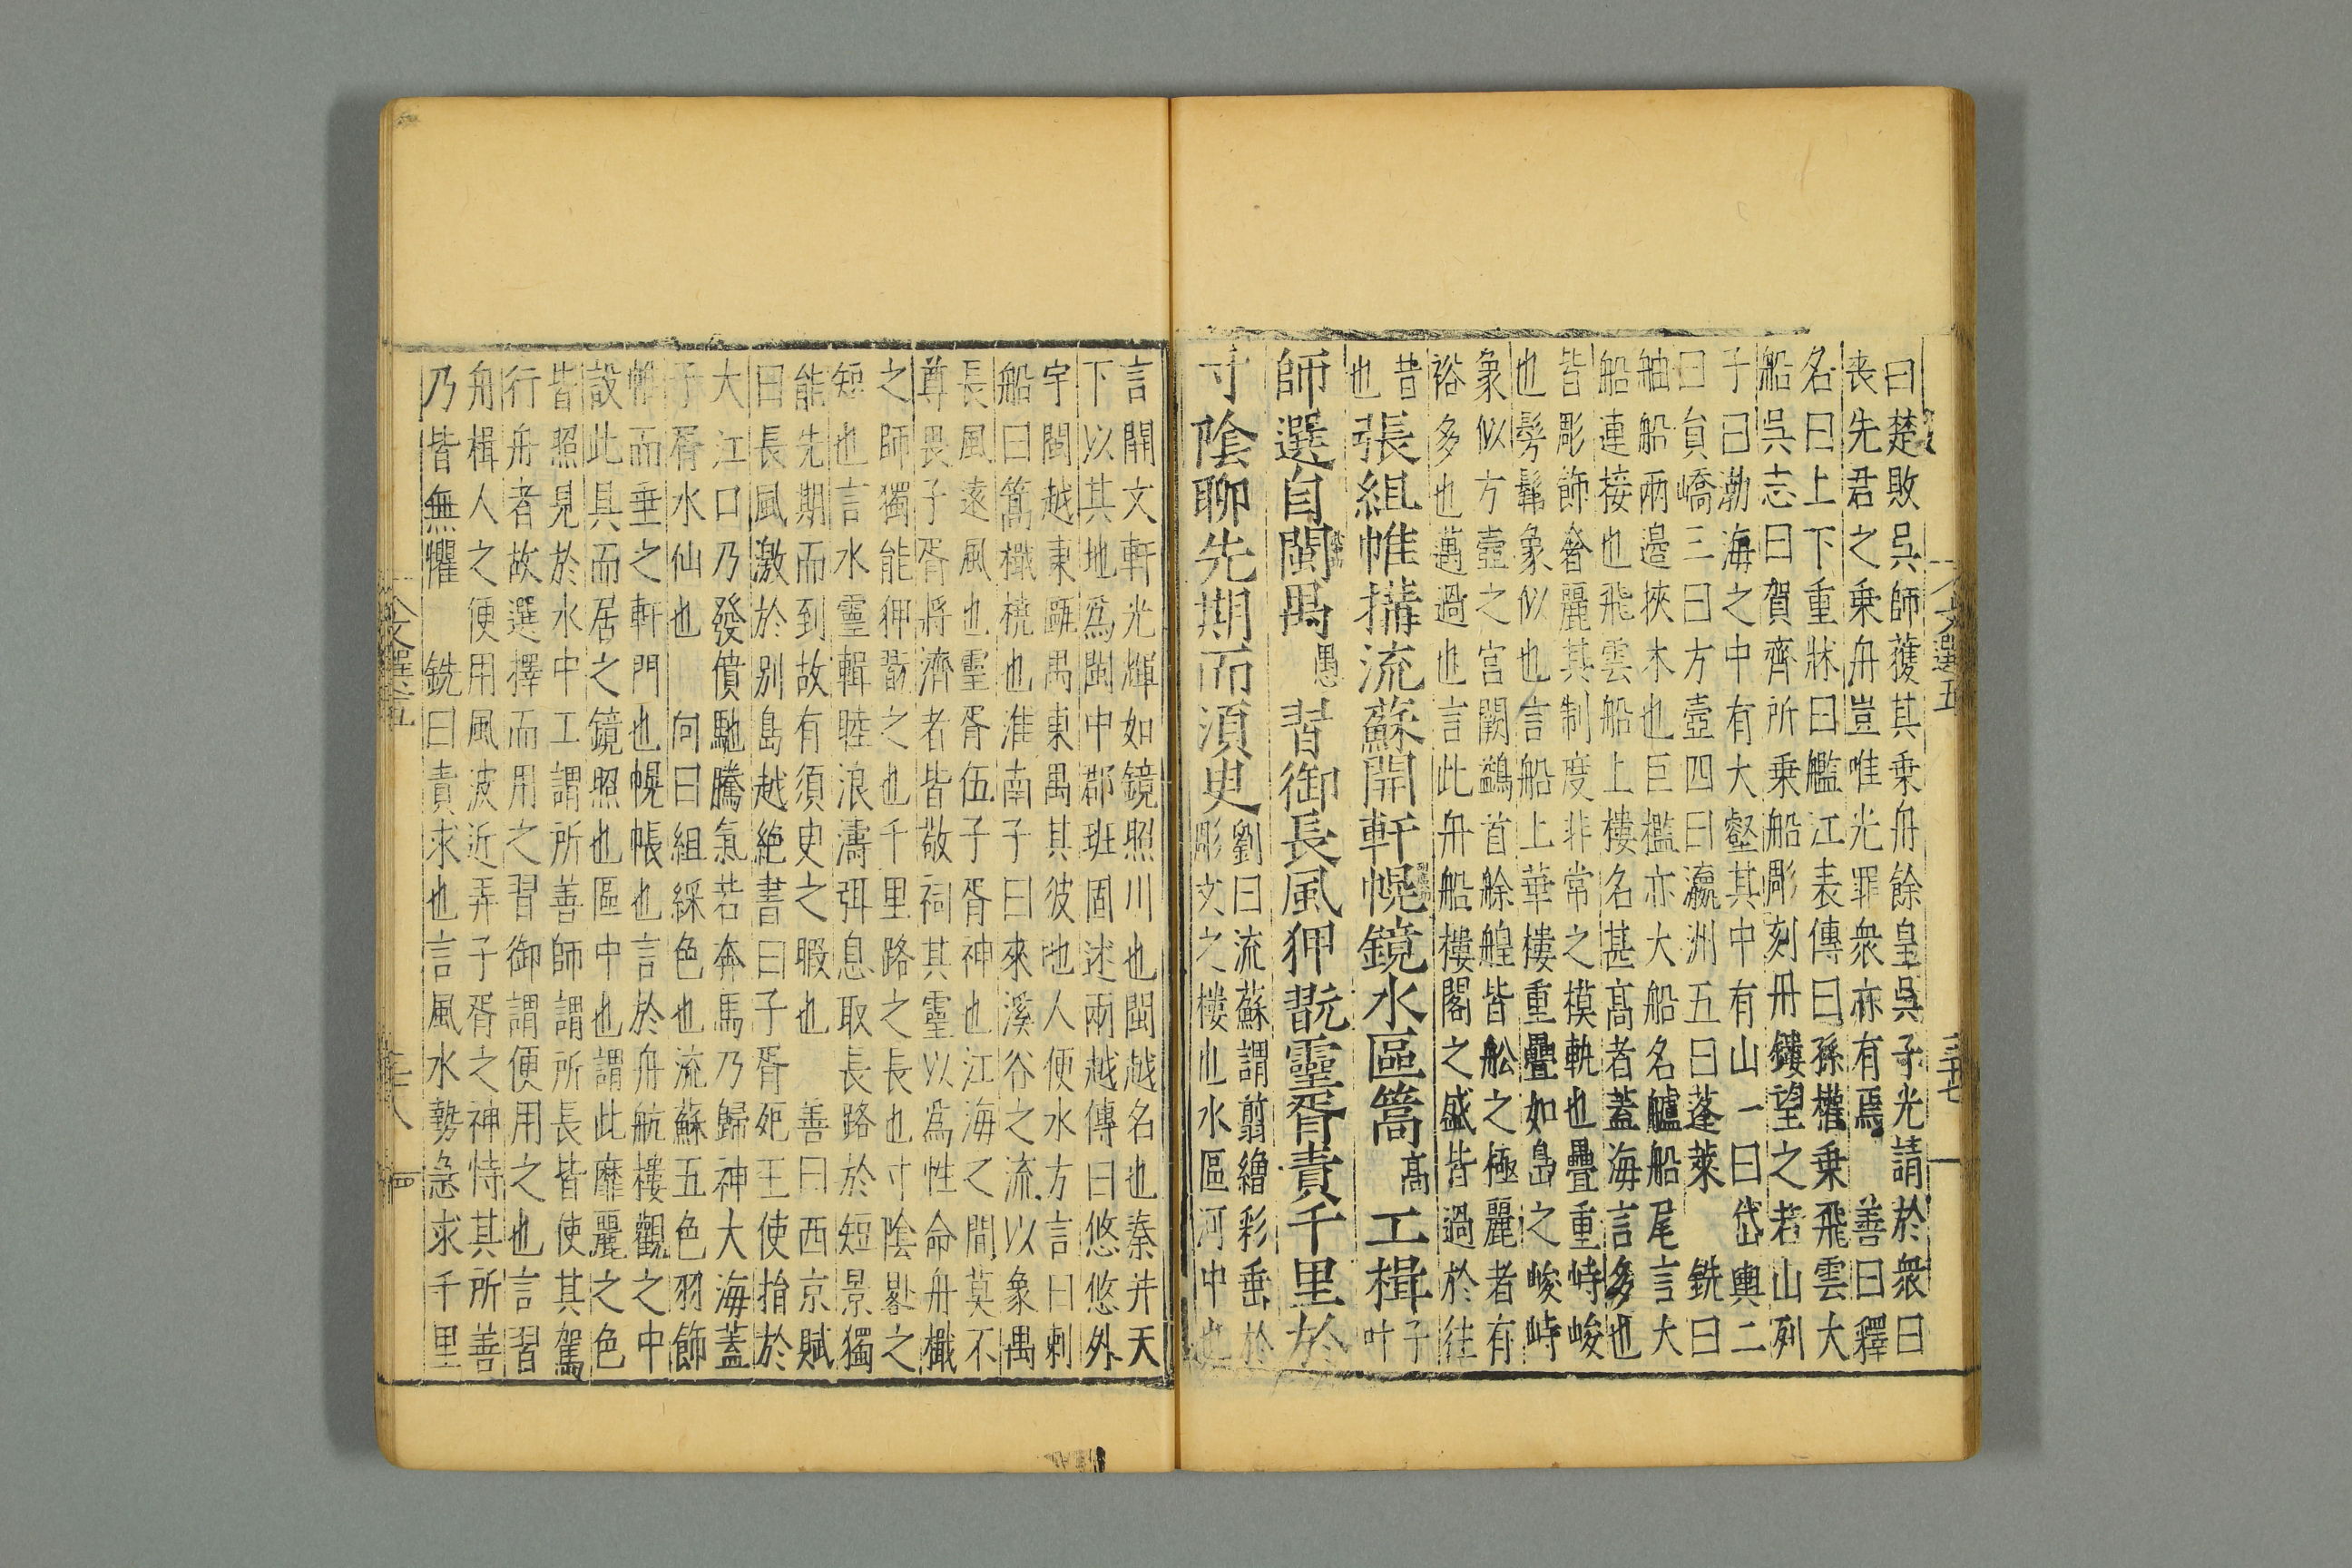 曰楚敗吳師獲其乗舟餘皇吳子光請於衆曰
䘮先君之乗舟豈唯光罪衆亦有焉 善曰釋
名曰上下重牀曰艦江表傳曰孫權乗飛雲大
船吳志曰賀齊所乗船彫刻丹鏤望之若山列
子曰渤海之中有大壑其中有山一曰岱輿二
曰貟嶠三曰方壺四曰瀛洲五曰蓬萊 銑曰
舳船兩邉挾木也巨檻亦大船名艫船尾言大
船連接也飛雲船上樓名甚髙者蓋海言多也
皆彫飾奢麗其制度非常之模軌也疊重峙峻
也髣髴象似也言船上華樓重疊如島之峻峙
象似方壺之宮闕鷁首艅艎皆舩之極麗者有
裕多也邁過也言此舟船樓閣之盛皆過於徃
昔
也
張組帷搆流蘇開軒幌鏡水區篙髙工楫子
叶
師選自閩禺愚習御長風狎翫靈胥責千里於
寸隂聊先期而湏㬰劉曰流蘇謂翦繒彩垂於
彫文之樓也水區河中也
文選五
三十七
言開文軒光煇如鏡照川也閩越名也秦并天
下以其地為閩中郡班固述兩越傳曰悠悠外
宇閩越東甌禺東禺其彼地人便水方言曰刺
船曰篙檝橈也淮南子曰來溪谷之流以象禺
長風遠風也靈胥伍子胥神也江海之間莫不
尊畏子胥將濟者皆敬祠其靈以為性命舟檝
之師獨能狎翫之也千里路之長也寸隂晷之
短也言水靈輯睦浪濤弭息取長路於短景獨
能先期而到故有須㬰之暇也 善曰西京賦
曰長風激於别島越絶書曰子胥死王使捐於
大江口乃發憤馳騰氣若奔馬乃歸神大海蓋
子胥水仙也 向曰組綵色也流蘇五色羽飾
帷而垂之軒門也幌帳也言於舟航樓觀之中
設此具而居之鏡照也區中也謂此靡麗之色
皆照見於水中工謂所善師謂所長皆使其駕
行舟者故選擇而用之習御謂便用之也言習
舟楫人之便用風波近弄子胥之神恃其所善
乃皆無懼 銑曰責求也言風水勢急求千里
文選五
三十八